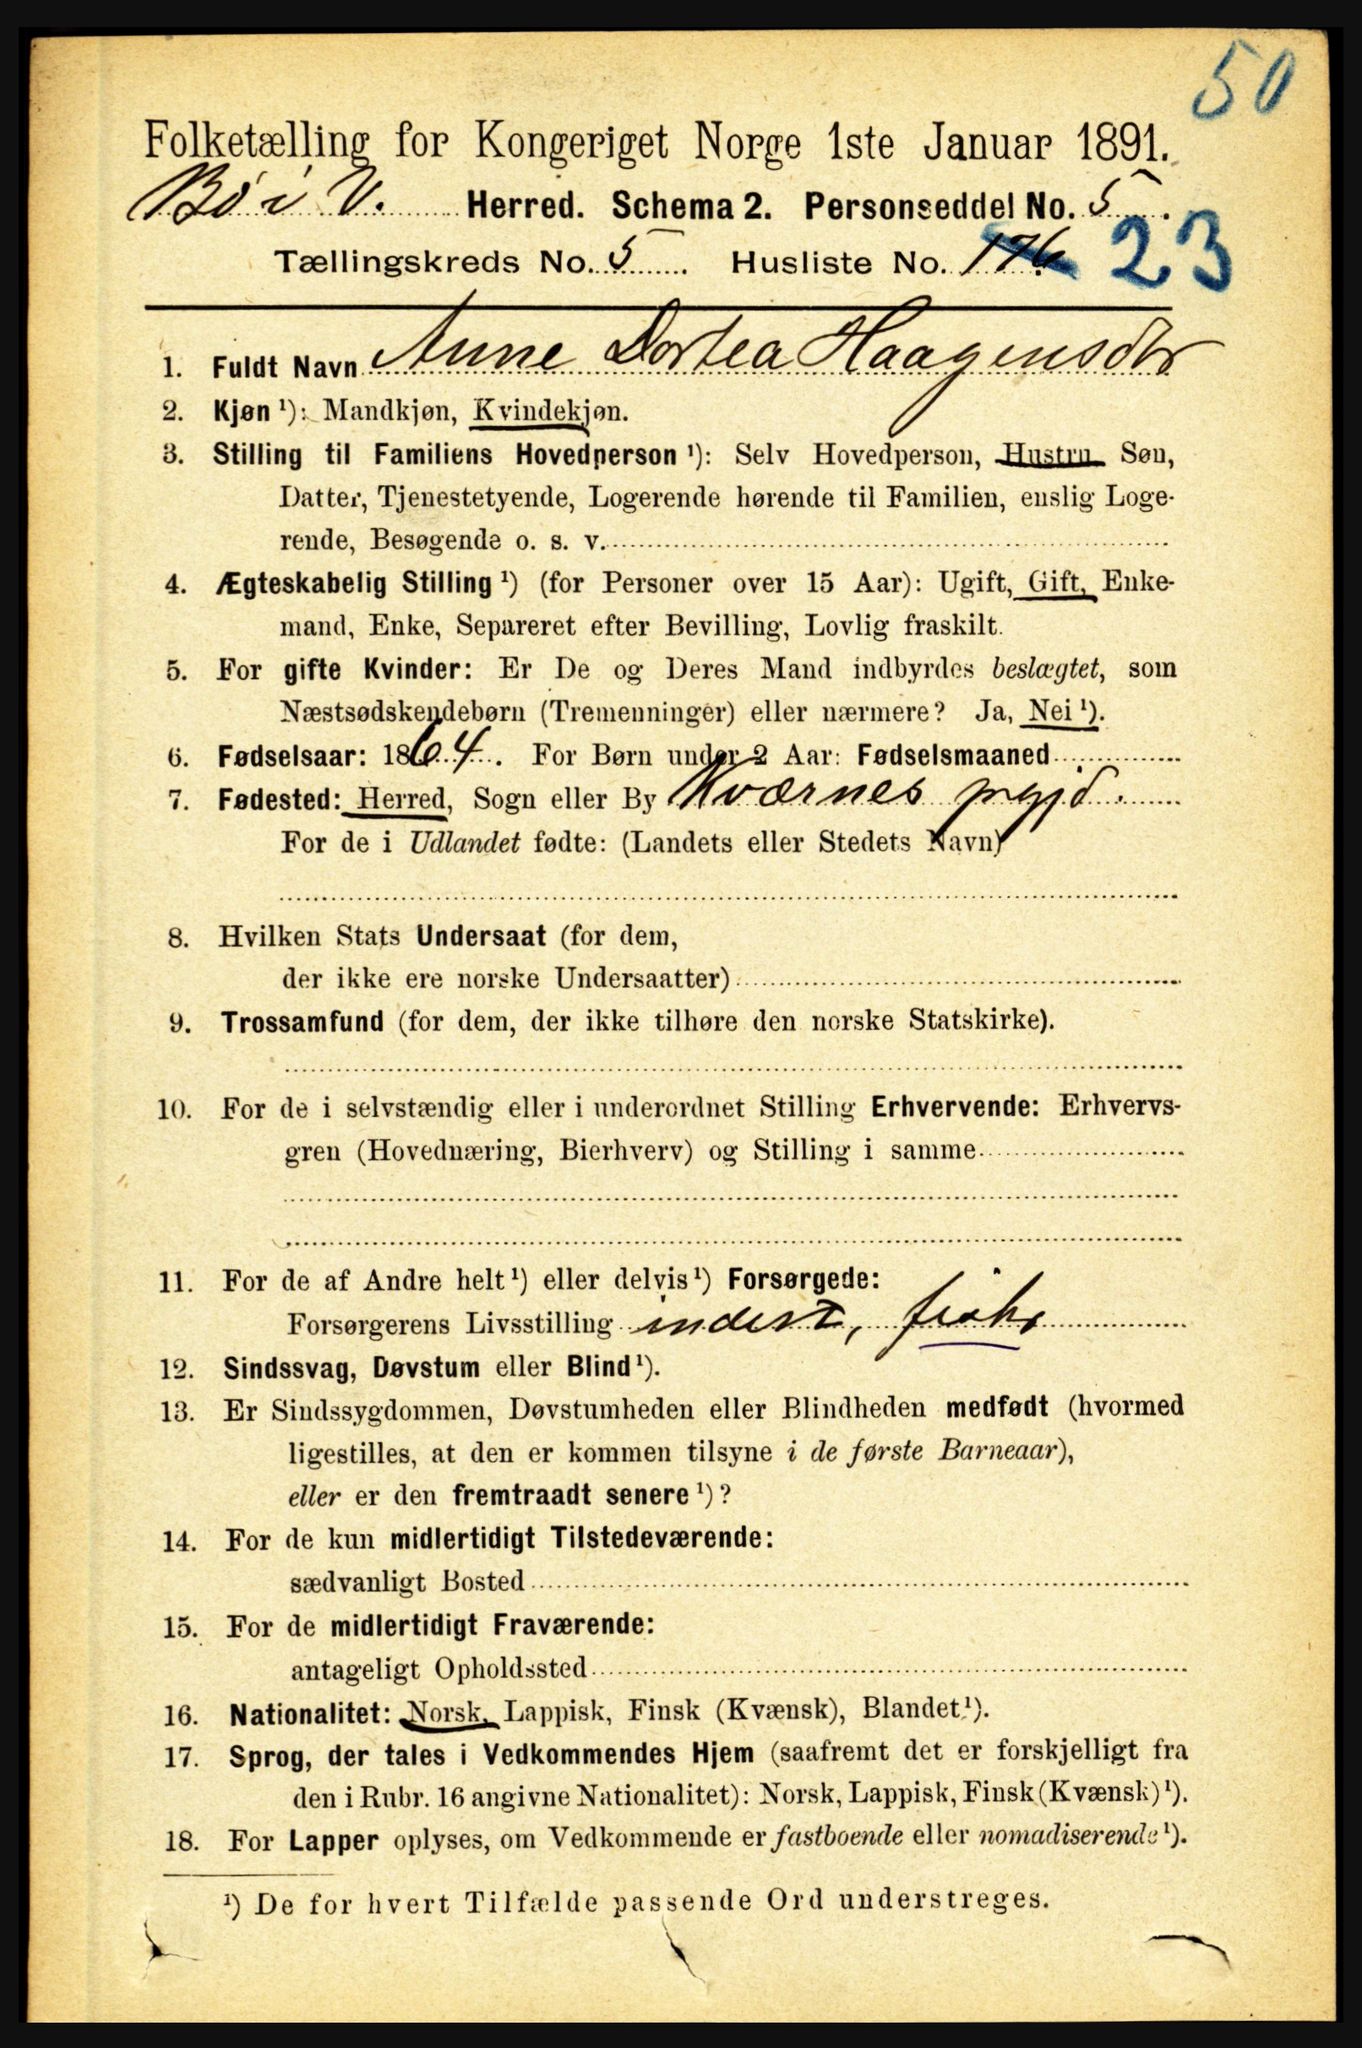 50
Folketælling for Kongeriget Norge 1ste Januar 1891.
Bø i V. Herred. Schema 2. Personseddel No. 5.
Tællingskreds No. 5. Husliste No. 176. 23
1. Fuldt Navn Anne Dortea Haagensdtr
2. Kjøn ¹): Mandkjøn, Kvindekjøn.
3. Stilling til Familiens Hovedperson ¹): Selv Hovedperson, Hustru Søn,
Datter, Tjenestetyende, Logerende hørende til Familien, enslig Loge-
rende, Besøgende o. s. v.
4. Ægteskabelig Stilling ¹) (for Personer over 15 Aar): Ugift, Gift, Enke-
mand, Enke, Separeret efter Bevilling, Lovlig fraskilt.
5. For gifte Kvinder: Er De og Deres Mand indbyrdes beslægtet, som
Næstsødskendebørn (Tremenninger) eller nærmere? Ja, Nei ¹).
6. Fødselsaar: 1864. For Børn under 2 Aar: Fødselsmaaned
7. Fødested: Herred, Sogn eller By Kværnes prgjd.
For de i Udlandet fødte: (Landets eller Stedets Navn)
8. Hvilken Stats Undersaat (for dem,
der ikke ere norske Undersaatter)
9. Trossamfund (for dem, der ikke tilhøre den norske Statskirke).
10. For de i selvstændig eller i underordnet Stilling Erhvervende: Erhvervs-
gren (Hovednæring, Bierhverv) og Stilling i samme
11. For de af Andre helt ¹) eller delvis ¹) Forsørgede:
Forsørgerens Livsstilling inderst, fisker
12. Sindssvag, Døvstum eller Blind ¹).
13. Er Sindssygdommen, Døvstumheden eller Blindheden medfødt (hvormed
ligestilles, at den er kommen tilsyne i de første Barneaar),
eller er den fremtraadt senere ¹)?
14. For de kun midlertidigt Tilstedeværende:
sædvanligt Bosted
15. For de midlertidigt Fraværende:
antageligt Opholdssted
16. Nationalitet: Norsk, Lappisk, Finsk (Kvænsk), Blandet ¹).
17. Sprog, der tales i Vedkommendes Hjem (saafremt det er forskjelligt fra
den i Rubr. 16 angivne Nationalitet): Norsk, Lappisk, Finsk (Kvænsk) ¹).
18. For Lapper oplyses, om Vedkommende er fastboende eller nomadiserende ¹).
¹) De for hvert Tilfælde passende Ord understreges.